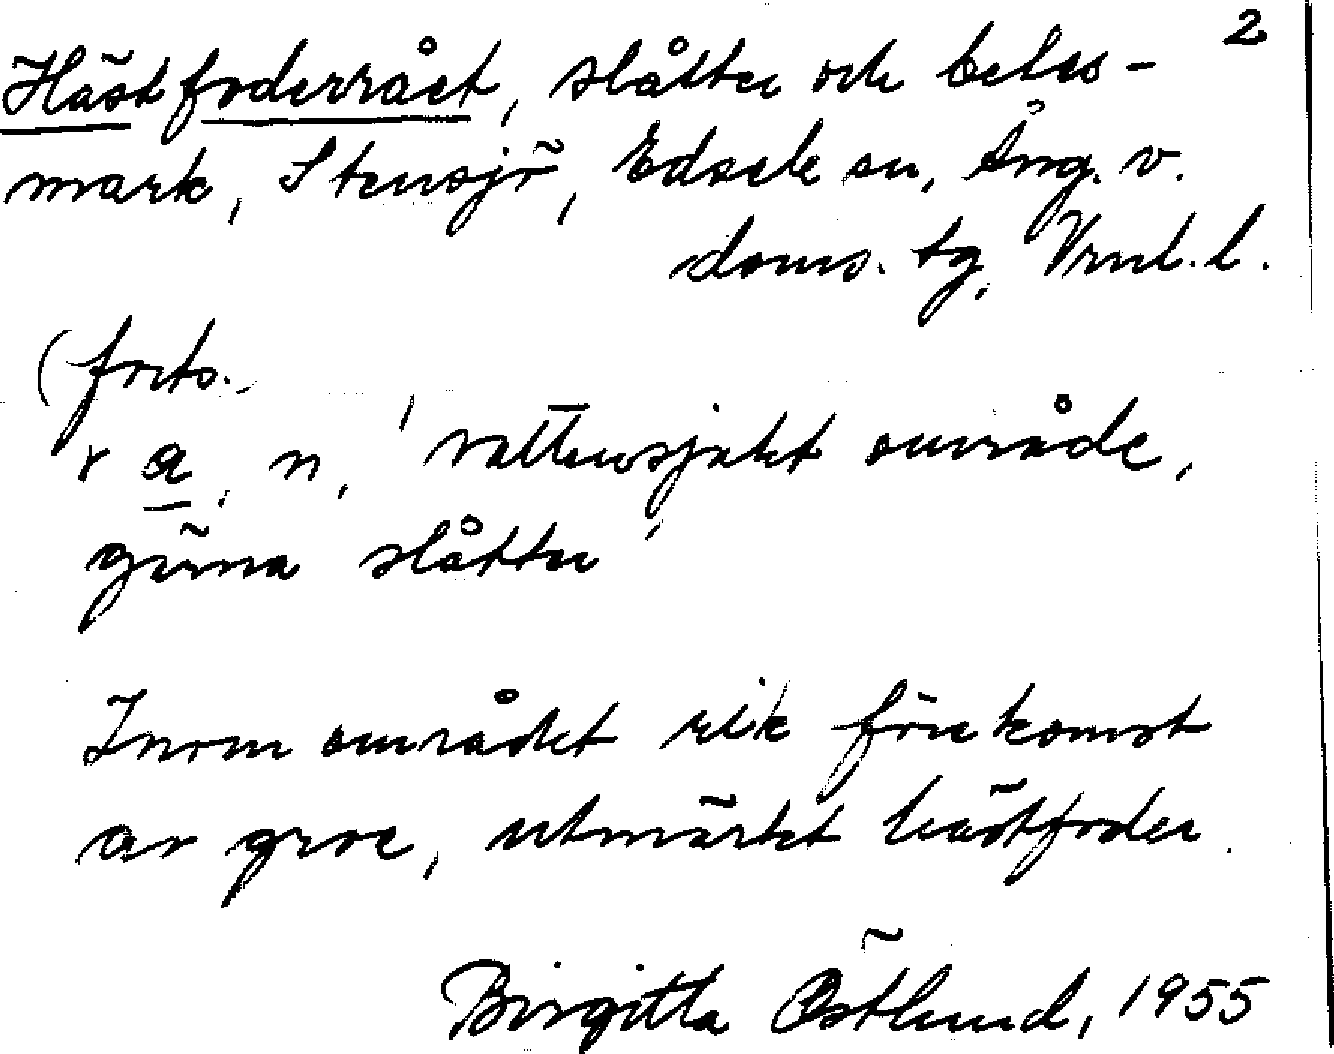 2
Hästfoderrået, slåtter och betes-
mark, Stensjö, Edsele sn, Ång. v.
doms. tg, Vrnl. l.
(forts.
r a, n, 'vattensjukt område,
gärna slåtter'
Inom området rik förekomst
av groe, utmärkt hästfoder.
Birgitta Östlund, 1955